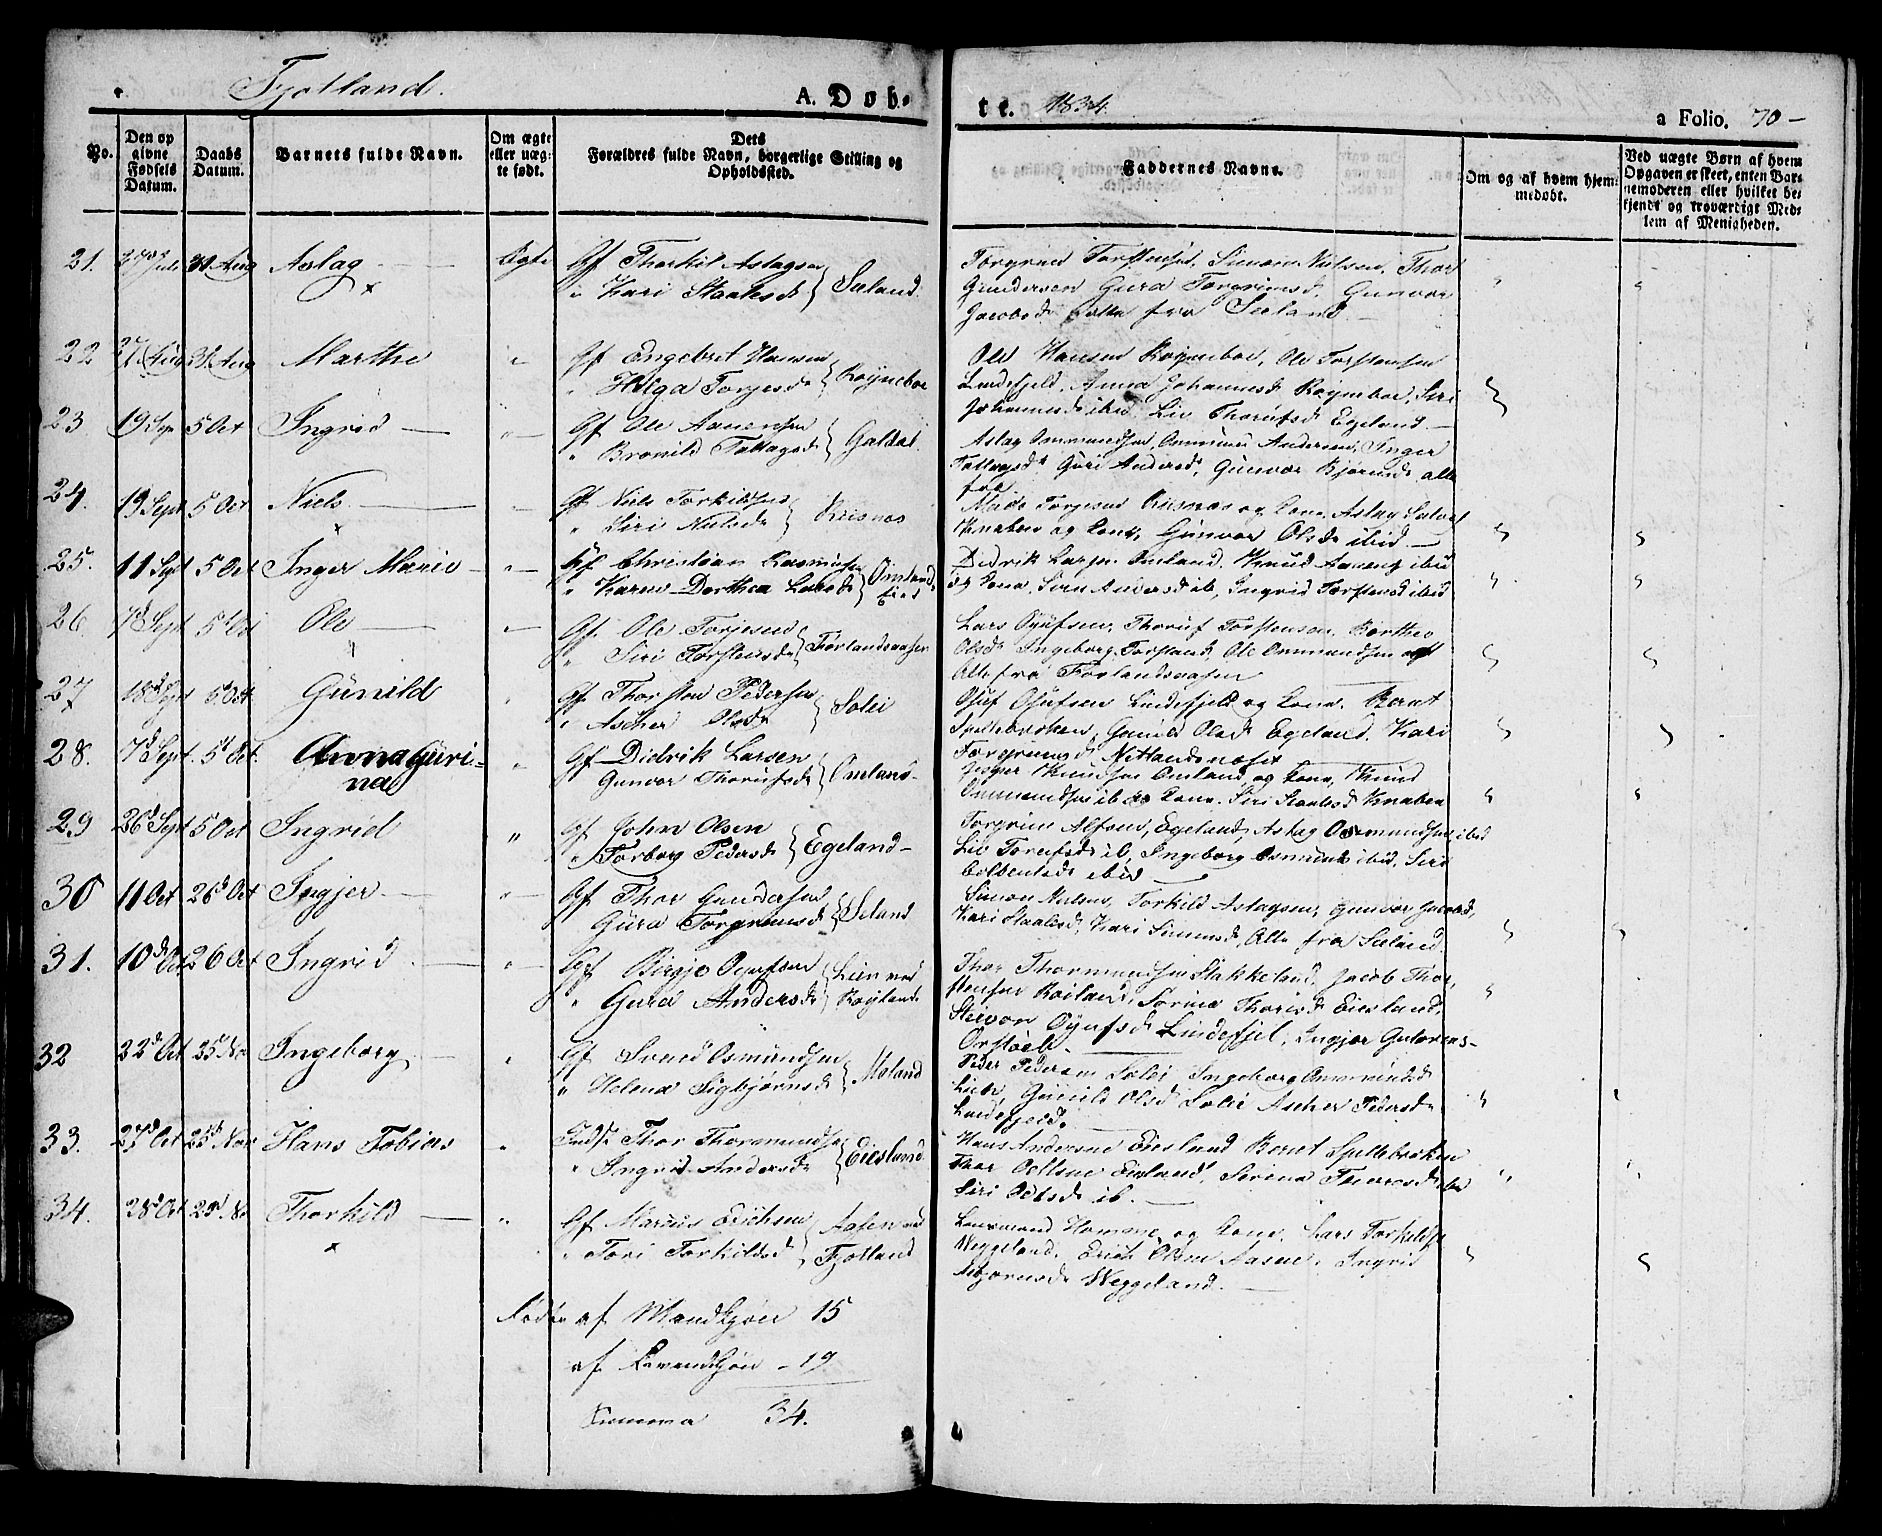 Fjotland.
A. Døb-
te. 1834.
a Folio. 70-
No.
Den op
givne
Fødsels
Datum.
Daabs
Datum.
Barnets fulde Navn.
Om ægte
eller uæg-
te født.
Dets
Forældres fulde Navn, borgerlige Stilling og
Opholdssted.
Faddernes Navne.
Om og af hvem hjem-
medøbt.
Ved uægte Børn af hvem
Opgaven er skeet, enten Bar-
nemoderen eller hvilket be-
kjendt og troværdigt Med-
lem af Menigheden.
21. Juli 31 Aug Aslag Ægte Gf Thorkil Aslagsen
" Kari Staalesd Seland
Torgrim Torstensen, Simon Nielsen, Thor
Gundersen Gura Torgrimsd. Gunvor
Jacobsd alle fra Seland
22 Aug 31 Aug Marthe " Gf Engebret Hansen
" Helga Torjesd Røyneboe
Ole Hansen Røyneboe, Ole Torstensen
Lindefjeld, Anna Johannesd Røyneboe, Siri
Johannesd ibid, Liv Thorufsd Egeland
23 19 Sep 5 Oct Ingrid " Gf Ole Aanensen
" Bronild Tallagsd Galdal
Aslag Ommundsen, Ommund Andersen, Inger
Tallagsd Guri Andersd, Gunvor Bjørnsd alle
fra
24. 19 Sept 5 Oct Niels Gf Niels Torkildsen
" Siri Nielsd Risnes
Torjesen Risnes og Kone, Aslag
Knaben og Kone, Gunvor Olsd ibid
25. 11 Sept 5 Oct Inger Marie " Gf Christian Rasmussen
" Karen Dorthea Larsd Omland
Eied
Didrik Larsen Omland, Knud Aanensen ibid
og Kone, Siren Andersd ib, Ingrid Torstensd ibid
26 7d Sept 5d Oct Ole " Gf. Ole Torjesen
" Siri Torstensd Førlandsaasen
Lars Ojufsen, Thoruf Torstensen, Berthe
Olsd Ingeborg Torstensd, Ole Ommundsen
Alle fra Førlandsaasen
27 18d Sept 5 Oct Gunild Gf Thorsten Pedersen
" Ascher Olsd Solei
Ojuf Ojufsen Lindefjeld og Kone. Bernt
Spillebroken, Gunild Olsd Egeland, Kari
Torgrimsd Netlandsnæset
28. 7d Sept. 5d Oct. Anna Guri-
na " Gf Didrik Larsen
Gunvor Thorufsd Omland-
Jesper Knudsen Omland og Kone, Knud
Ommundsen ib og Kone. Siri Staalesd Knaben
29 26d Sept 5 Oct Ingrid " Gf John Olsen
" Torborg Pedersd Egeland-
Torgrim Alfsen, Egeland, Aslag Osmundsen ibid
Liv Torufsd ib, Ingeborg Osmundsd ibid, Siri
ibid
30 11 Oct 26d Oct Ingjer " Gf Thor Gundersen
Gura Torgrimsd Seland
Simon Nielsen, Torkild Aslagsen, Gunvor Jacobsd,
Kari Staalesd, Kari Simonsd, Alle fra Seland.
31. 10d Oct 26 Oct Ingrid " Gf Birgje Ojufsen
" Gura Andersd Lien ved
Røyland
Thor Thormundsen Stakkeland, Jacob Thor-
stensen Røiland, Sorine Thorisd Eiesland,
Steivor Ojufsd Lindefjel, Ingjer Gutorms-
32 22d Oct 25 No Ingeborg " Gf Svend Osmundsen
" Helena Sigbjørnsd Moland
Peder Pedersen Solei Ingeborg Ommundsd
Lied, Gunild Olsd Solei Ascher Pedersd
Lindefjeld.
33. 27d Oct 25d Nov Hans Tobias " Inds. Thor Thormundsen
" Ingrid Andersd Eiesland
Hans Andersen Eiesland Bernt Spillebroken
Thor Oellsen Eiesland, Serina Thoresd ibid
Siri Oelsd ib.
34. 28d Oct 25d No Thorkild " Gf Marius Erichsen
" Tori Torkildsd Aasen ved
Fjotland
Lensmand Homme og Kone, Lars Torkilds.
Weggeland, Erich Olsen Aasen, Ingrid
Asbjørnsd Weggeland.
Fødte af Mandkjøn 15
af Kvindekjøn - 19
Summa 34.